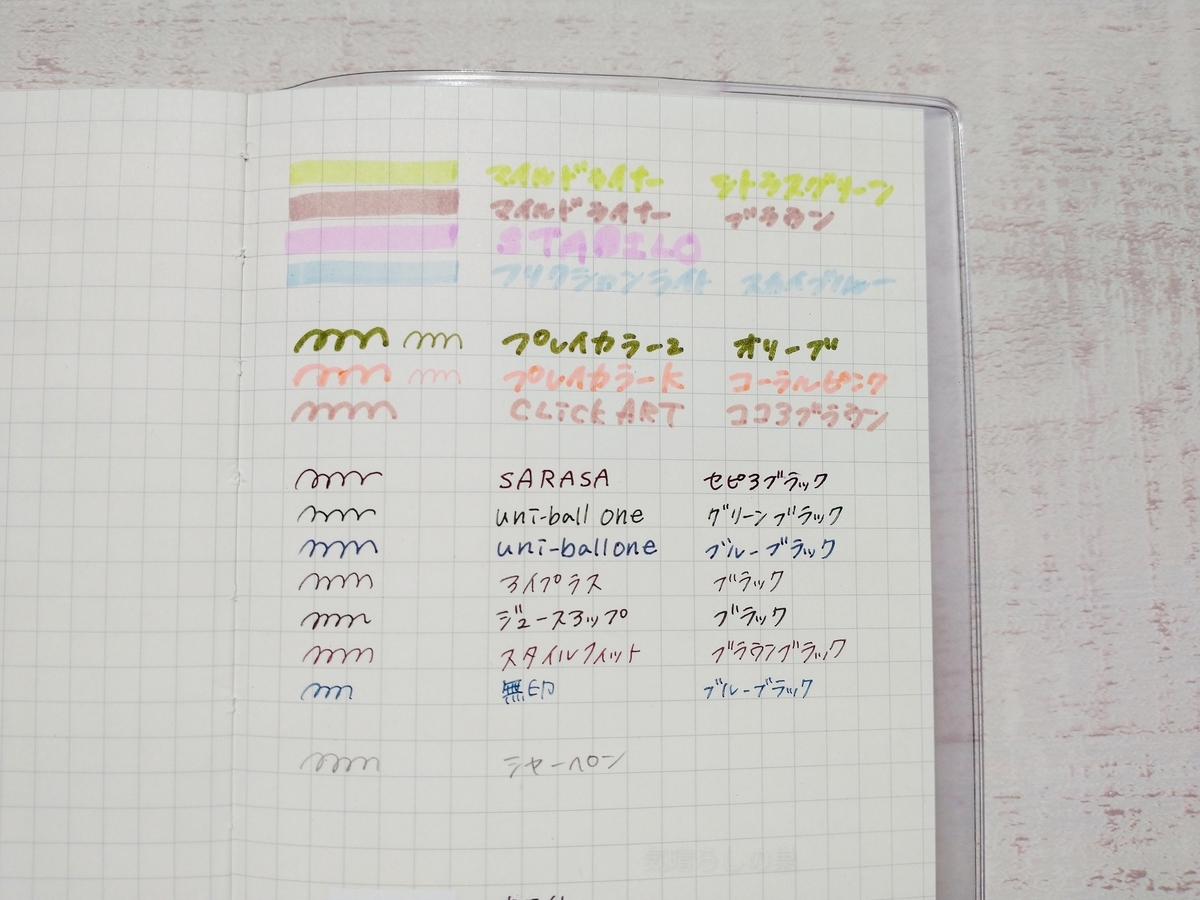 マイルドライナー シトラスグリーン
マイルドライナー ブラウン
STABILO
フリクションライト スカイブルー
プレイカラー2 オリーブ
プレイカラーK コーラルピンク
CLiCK ART ココアブラウン
SARASA セピアブラック
uni-ball one グリーンブラック
uni-ball one ブルーブラック
アイプラス ブラック
ジュースアップ ブラック
スタイルフィット ブラウンブラック
無印 ブルーブラック
シャーペン